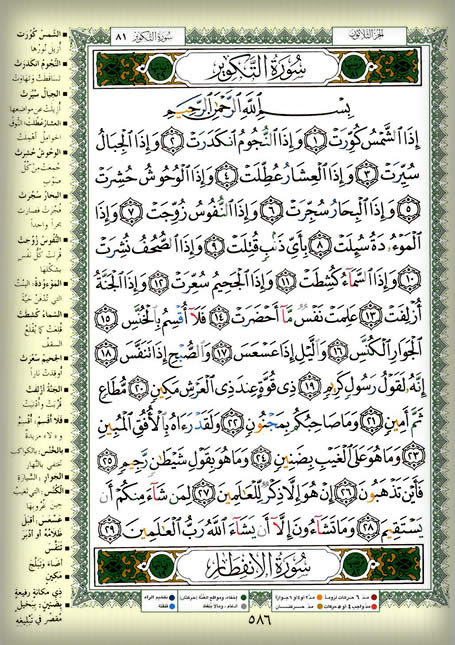 الجزء الثلاثون
سورة التكوير ٨١
سُورَةُ التَّكْوِيرِ
بِسْمِ اللَّهِ الرَّحْمَٰنِ الرَّحِيمِ
إِذَا الشَّمْسُ كُوِّرَتْ ١ وَإِذَا النُّجُومُ انكَدَرَتْ ٢ وَإِذَا الْجِبَالُ
سُيِّرَتْ ٣ وَإِذَا الْعِشَارُ عُطِّلَتْ ٤ وَإِذَا الْوُحُوشُ حُشِرَتْ
٥ وَإِذَا الْبِحَارُ سُجِّرَتْ ٦ وَإِذَا النُّفُوسُ زُوِّجَتْ ٧ وَإِذَا
الْمَوْءُۥدَةُ سُئِلَتْ ٨ بِأَيِّ ذَنۢبٍ قُتِلَتْ ٩ وَإِذَا الصُّحُفُ نُشِرَتْ
١٠ وَإِذَا السَّمَآءُ كُشِطَتْ ١١ وَإِذَا الْجَحِيمُ سُعِّرَتْ ١٢ وَإِذَا الْجَنَّةُ
أُزْلِفَتْ ١٣ عَلِمَتْ نَفْسٌ مَّآ أَحْضَرَتْ ١٤ فَلَآ أُقْسِمُ بِالْخُنَّسِ ١٥
الْجَوَارِ الْكُنَّسِ ١٦ وَالَّيْلِ إِذَا عَسْعَسَ ١٧ وَالصُّبْحِ إِذَا تَنَفَّسَ ١٨
إِنَّهُۥ لَقَوْلُ رَسُولٍ كَرِيمٍ ١٩ ذِي قُوَّةٍ عِندَ ذِي الْعَرْشِ مَكِينٍ ٢٠ مُّطَاعٍ
ثَمَّ أَمِينٍ ٢١ وَمَا صَاحِبُكُم بِمَجْنُونٍ ٢٢ وَلَقَدْ رَءَاهُ بِالْأُفُقِ الْمُبِينِ
٢٣ وَمَا هُوَ عَلَى الْغَيْبِ بِضَنِينٍ ٢٤ وَمَا هُوَ بِقَوْلِ شَيْطَٰنٍ رَّجِيمٍ ٢٥
فَأَيْنَ تَذْهَبُونَ ٢٦ إِنْ هُوَ إِلَّا ذِكْرٌ لِّلْعَٰلَمِينَ ٢٧ لِمَن شَآءَ مِنكُمْ أَن
يَسْتَقِيمَ ٢٨ وَمَا تَشَآءُونَ إِلَّآ أَن يَشَآءَ اللَّهُ رَبُّ الْعَٰلَمِينَ ٢٩
سُورَةُ الانفِطَارِ
الشمس كورت
أزيل نورها
النجوم انكدرت
تساقطت وتهاوت
الجبال سيرت
أزيلت عن مواضعها
العشار عطلت: النوق
الحوامل أهملت
الوحوش حشرت
جمعت من كل
صوب
البحار سجرت
فجرت فصارت
بحراً واحداً
النفوس زوجت
قرنت كل نفس
بشكلها
الموءودة: البنت
التي تدفن حية
السماء كشطت
قلعت كما يقلع
السقف
الجحيم سعرت
أوقدت ناراً
الجنة أزلفت
قربت وأدنيت
فلا أقسم: أقسم
و «لا» مزيدة
بالخنس: بالكواكب
تختفي بالنهار
الجوار: السيارة
الكنس: التي تغيب
حين غروبها
عسعس: أقبل
ظلامه أو أدبر
تنفس
أضاء وتبلج
مكين
ذي مكانة رفيعة
بضنين: ببخيل
مقصر في تبليغه
مدّ ٦ حركات لزوماً
مدّ ٢ أو ٤ أو ٦ جوازاً
إخفاء، ومواقع الغنّة (حركتان)
تفخيم الراء
مدّ واجب ٤ أو ٥ حركات
مدّ حركتان
ادغام، ومالا يُلفظ
قلقلة
٥٨٦